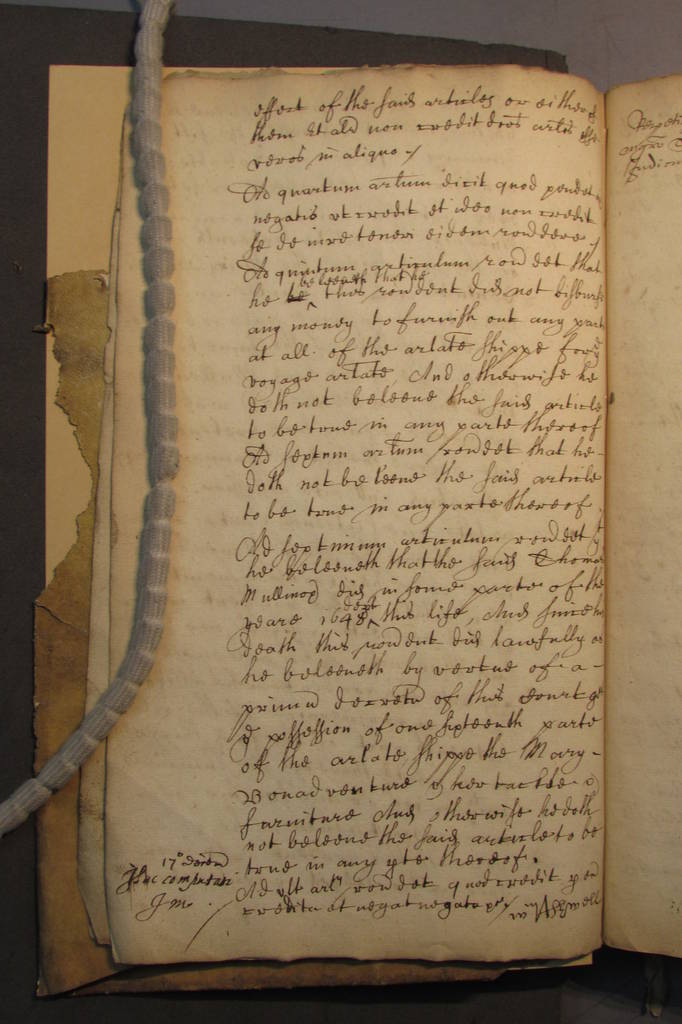 effect of the said articles or either of
them Et als non credit dcos artlos esse
veros in aliquo
Ad quartum artlum dicit quod pendet in
negatis ut credit et ideo non credit
se de iure teneri eidem rondere
Ad quintum articulum rondet that
beleeveth that he
he be this rondent did not disburse
any money to furnish out any parte
at all of the arlate shippe for ye
voyage arlate, And otherwise he
doth not beleeve the said article
to be true in any parte thereof
Ad septum artlum rondet that he
doth not beleeve the said article
to be true in any parte thereof.
Ad septimum articulum rondet yt
he beleeveth that the said Thomas
Mullinod did in some parte of the
dept
yeare 1648 this life, And since his
death this rondent did lawfully as
he beleeveth by vertue of a
primu decretu of this Court get
ye possession of one sixteenth parte
of the arlate shippe the Mary
Bonadventure & her tackle &
furniture And otherwise he doth
not beleeve the said article to be
true in any pte thereof.
Ad ult arlu rondet quod credit p end
credita et negat negata
Wm Ashwell
17o
computari